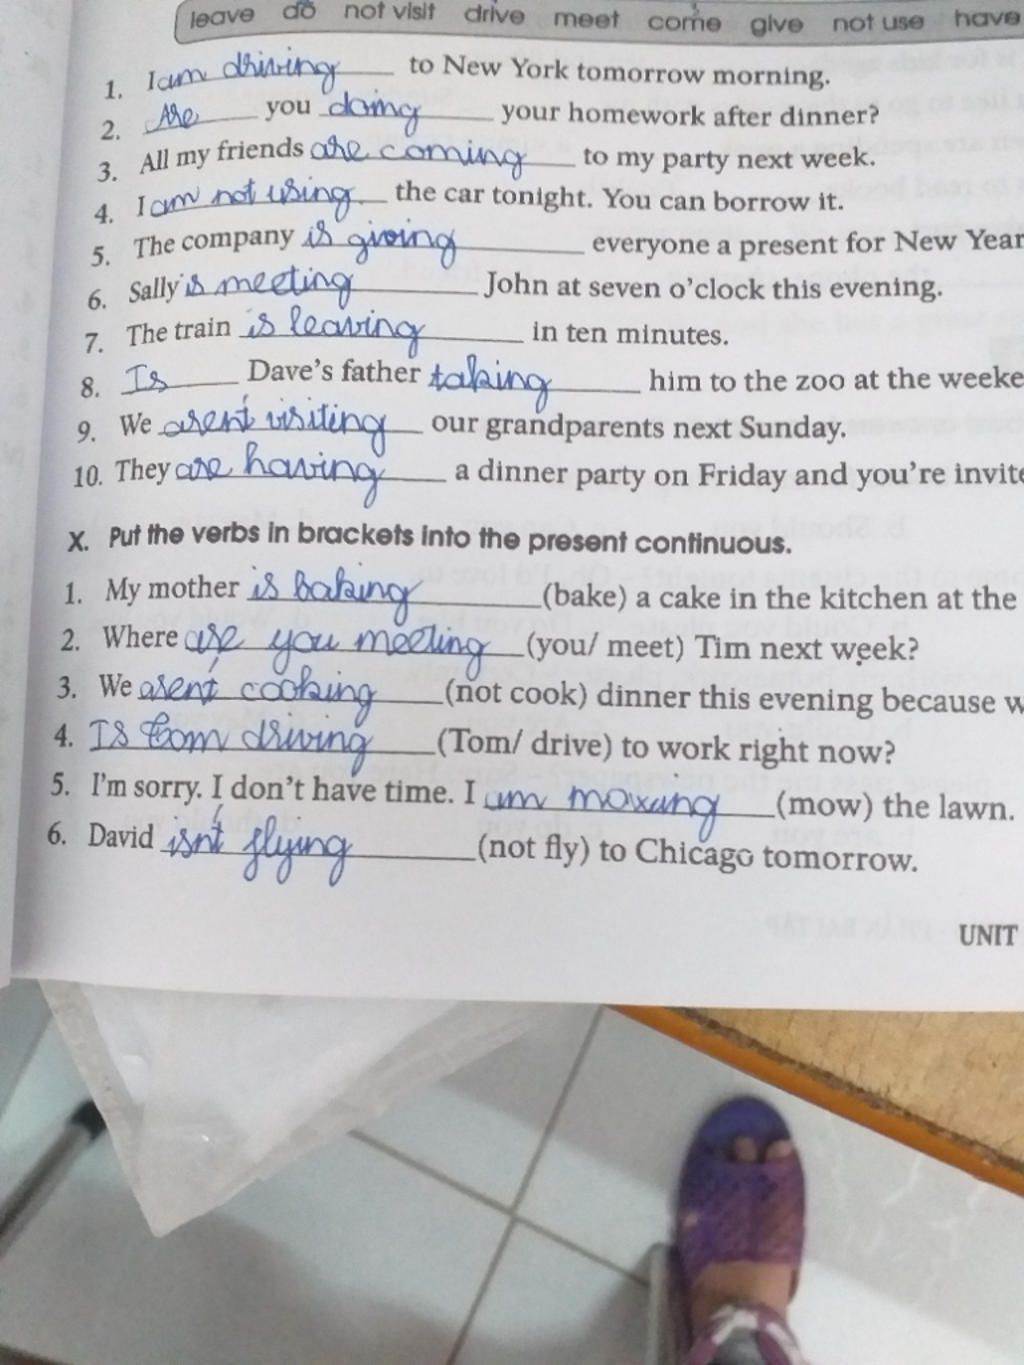 leave do not visit drive meet come give not use have
1. I am driving to New York tomorrow morning.
2. Are you doing your homework after dinner?
3. All my friends are coming to my party next week.
4. I am not using the car tonight. You can borrow it.
5. The company is giving everyone a present for New Year
6. Sally is meeting John at seven o'clock this evening.
7. The train is leaving in ten minutes.
8. Is Dave's father taking him to the zoo at the weeke
9. We aren't visiting our grandparents next Sunday.
10. They are having a dinner party on Friday and you're invite
X. Put the verbs in brackets into the present continuous.
1. My mother is baking (bake) a cake in the kitchen at the
2. Where are you meeting (you/ meet) Tim next week?
3. We aren't cooking (not cook) dinner this evening because w
4. Is Tom driving (Tom/ drive) to work right now?
5. I'm sorry. I don't have time. I am (mow) the lawn.
6. David isn't flying (not fly) to Chicago tomorrow.
UNIT